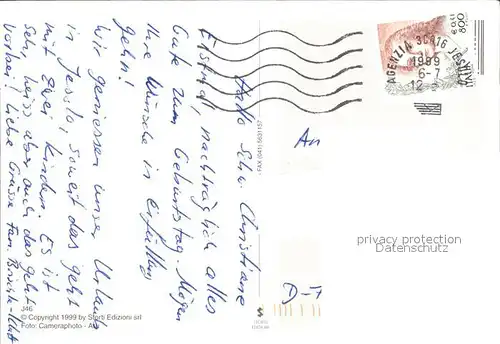 Hallo Sehr. Christiane
Erstmal, nachträglich alles
Gute zum Geburtstag. Mögen
Ihre Wünsche in Erfüllung
gehn!
Wir geniessen unser Urlaub
in Jesolo, soweit das geht
mit zwei Kindern. Es ist
sehr heiss aber auch das geht
vorbei! Liebe Grüsse Fam.
J46
© Copyright 1999 by Storti Edizioni srl
Foto: Cameraphoto - A
FAX (041) 5631157
AGENZIA 30016 JESOLO
1999
6-7
12
ITALIA
800
An
D-7
privacy protection
www.ansichtskartenversand.com